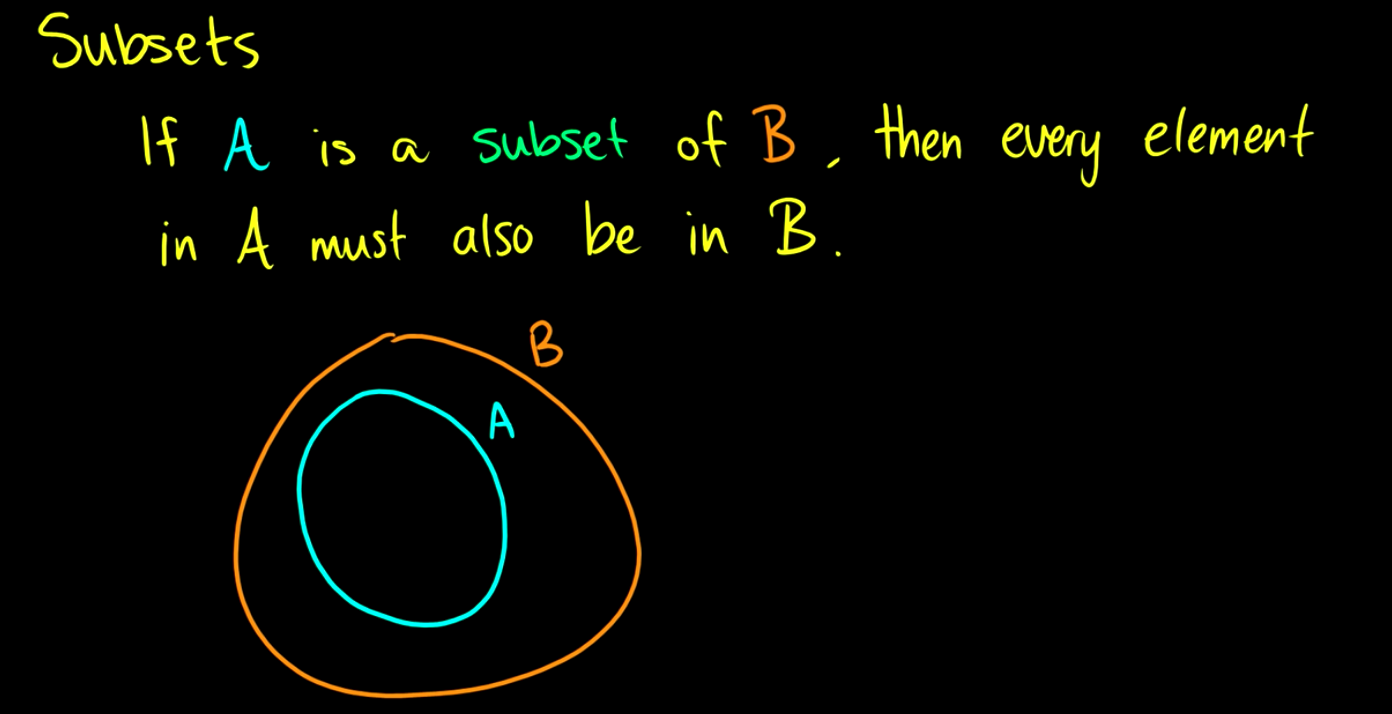 Subsets
If A is a subset of B, then every element
in A must also be in B.
B
A